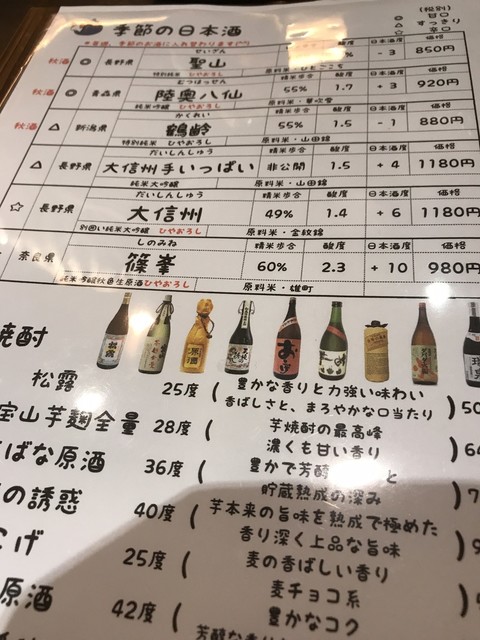 季節の日本酒
(税別)
◎ 甘口
△ すっきり
☆ 辛口
せいざん
秋酒 ◎ 長野県 聖山 % - 3 850円
特別純米 ひやおろし 原料米・ひとごこち
むつはっせん 精米歩合 酸度 日本酒度 価格
秋酒 ◎ 青森県 陸奥八仙 55% 1.7 + 3 920円
純米吟醸 ひやおろし 原料米・華吹雪
かくれい 精米歩合 酸度 日本酒度 価格
秋酒 △ 新潟県 鶴齢 55% 1.5 - 1 880円
特別純米 ひやおろし 原料米・山田錦
だいしんしゅう 精米歩合 酸度 日本酒度 価格
△ 長野県 大信州手いっぱい 非公開 1.5 + 4 1180円
純米大吟醸 原料米・山田錦
だいしんしゅう 精米歩合 酸度 日本酒度 価格
☆ 長野県 大信州 49% 1.4 + 6 1180円
別囲い純米大吟醸 ひやおろし 原料米・金紋錦
しのみね 精米歩合 酸度 日本酒度 価格
奈良県 篠峯 60% 2.3 + 10 980円
純米吟醸秋色生原酒ひやおろし 原料米・雄町
焼酎
松露 25度 (豊かな香りと力強い味わい
香ばしさと、まろやかな口当たり) 50
宝山芋麹全量 28度 (芋焼酎の最高峰
濃くも甘い香り) 64
ばな原酒 36度 (豊かで芳醇 と
貯蔵熟成の深み) 7
の誘惑 40度 (芋本来の旨味を熟成で極めた
香り深く上品な旨味) 9
こげ 25度 (麦の香ばしい香り
麦チョコ系
原酒 42度 (豊かなコク